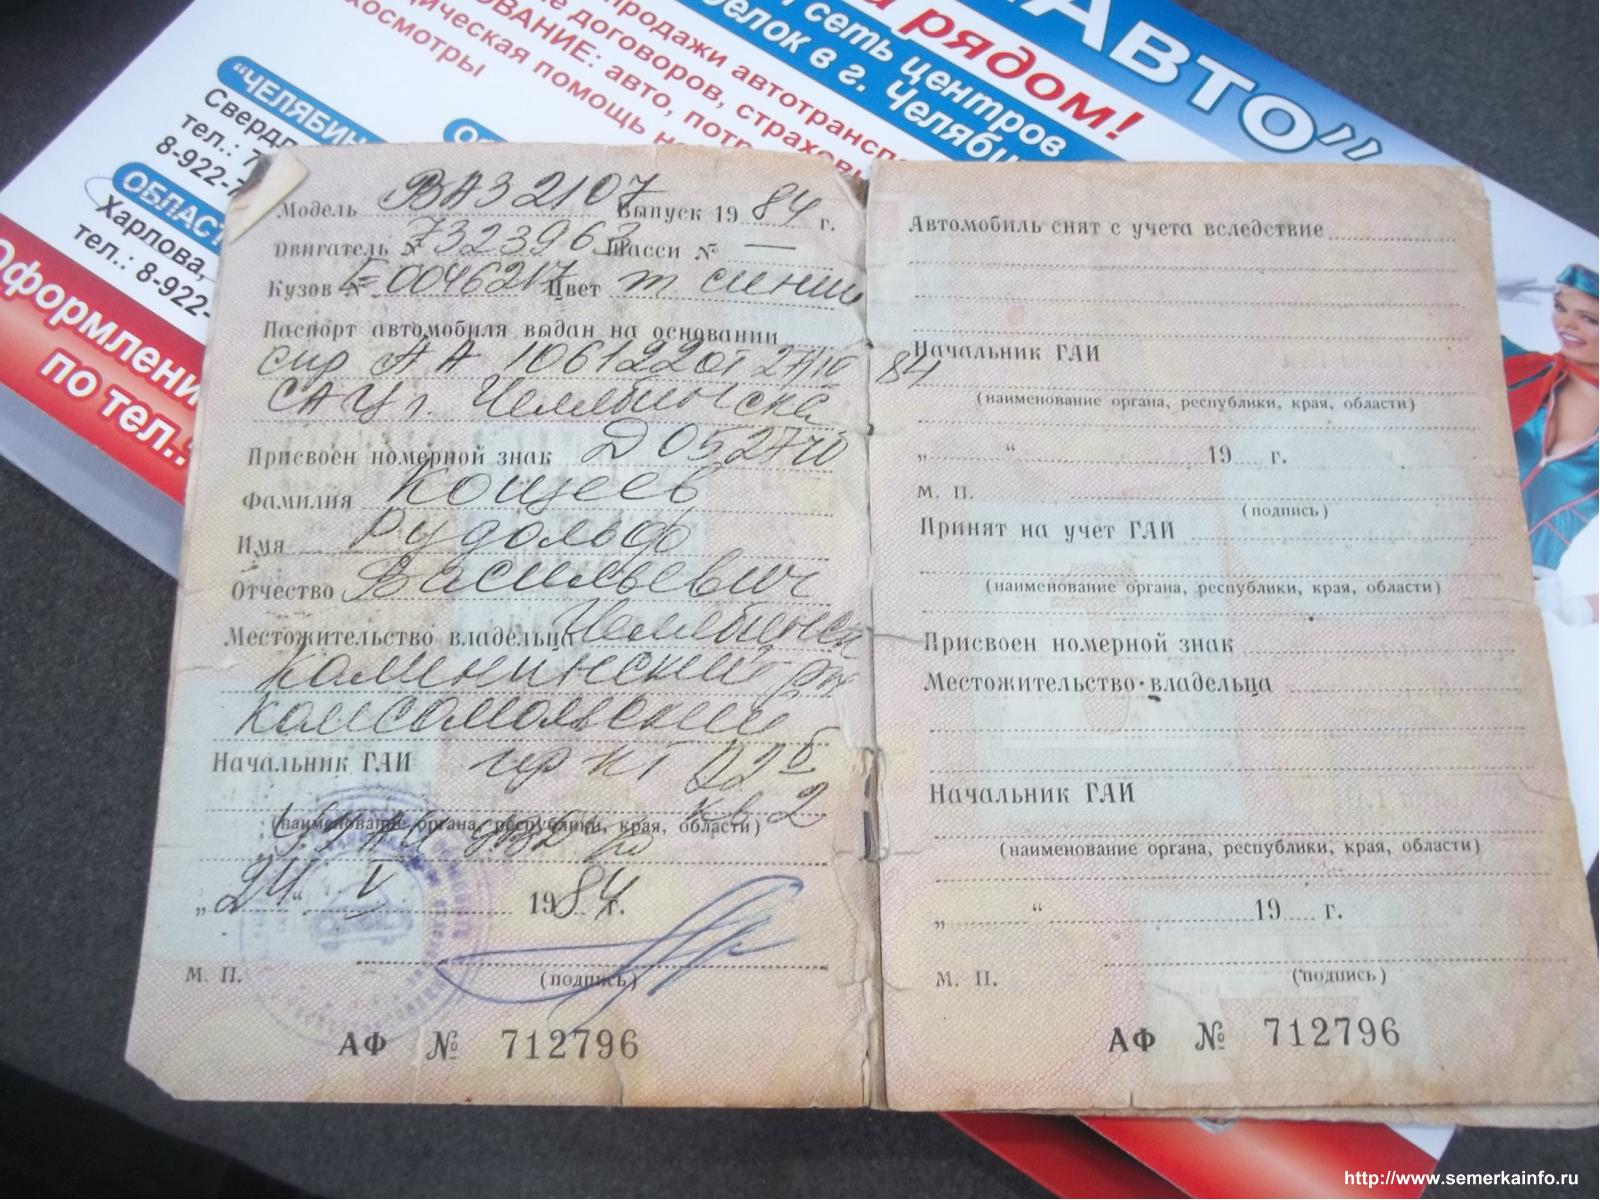 АВТО”
а рядом!
сеть центров
продажи автотрансп
е договоров, страховы
ОВАНИЕ: авто, потр
ическая помощь на
хосмотры
“ЧЕЛЯБИН
Свердл
тел.: 7
8-922-7
ОБЛАСТ
Харлова,
тел.: 8-922-
Оформлени
по тел.:
Модель ВАЗ 2107 Выпуск 1984 г.
Двигатель № 7323963 Шасси № —
Кузов № Е0046217 Цвет т синий
Паспорт автомобиля выдан на основании
спр АА 106122 от 27/IV 84
САЦ г. Челябинска
Присвоен номерной знак Д0527
Фамилия Кощеев
Имя Рудольф
Отчество Васильевич
Местожительство владельца Челябинск
Калининский р-н
Комсомольский
Начальник ГАИ пр кт 22б
кв 2
(наименование органа, республики, края, области)
„24“ V 1984 г.
М. П. (подпись)
АФ № 712796
Автомобиль снят с учета вследствие
Начальник ГАИ
(наименование органа, республики, края, области)
„ “ 19 г.
М. П.
(подпись)
Принят на учет ГАИ
(наименование органа, республики, края, области)
Присвоен номерной знак
Местожительство владельца
Начальник ГАИ
(наименование органа, республики, края, области)
„ “ 19 г.
М. П. (подпись)
АФ № 712796
http://www.semerkainfo.ru